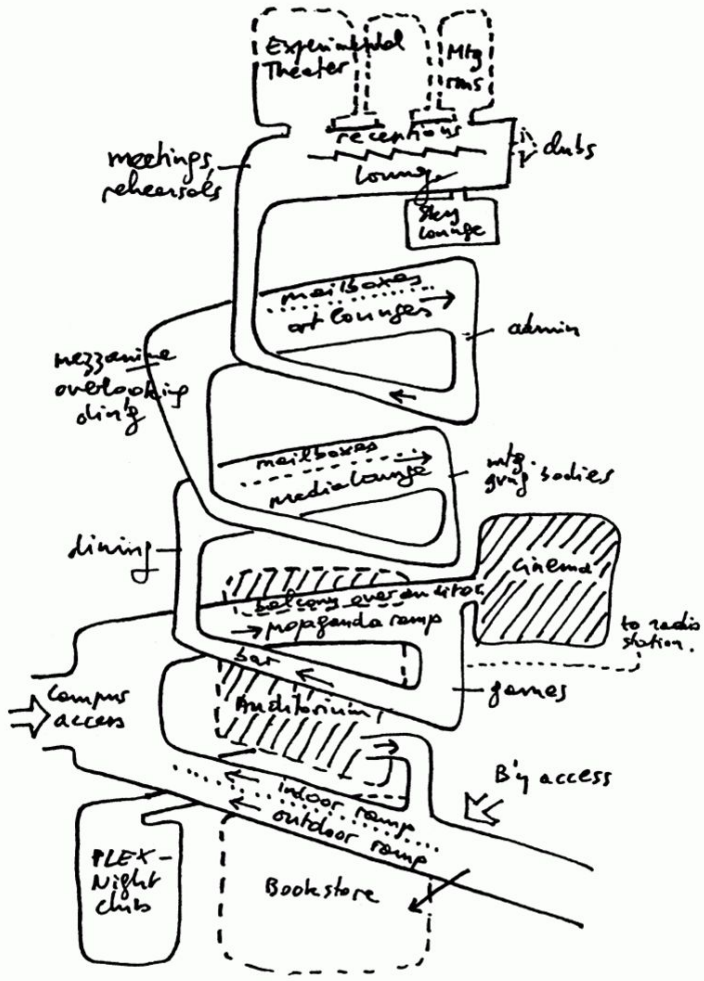 Experimental
Theater
Mtg
rms
receptions
lounge
clubs
meetings,
rehearsals
Sky
lounge
mailboxes
art lounges
admin
mezzanine
overlooking
din'g
mailboxes
media lounge
mtg.
gvng bodies
dining
cinema
balcony over auditor.
propaganda ramp
to radio
station.
bar
games
Campus
access
Auditorium
B'y access
indoor ramp
outdoor ramp
PLEX-
Night
club
Bookstore